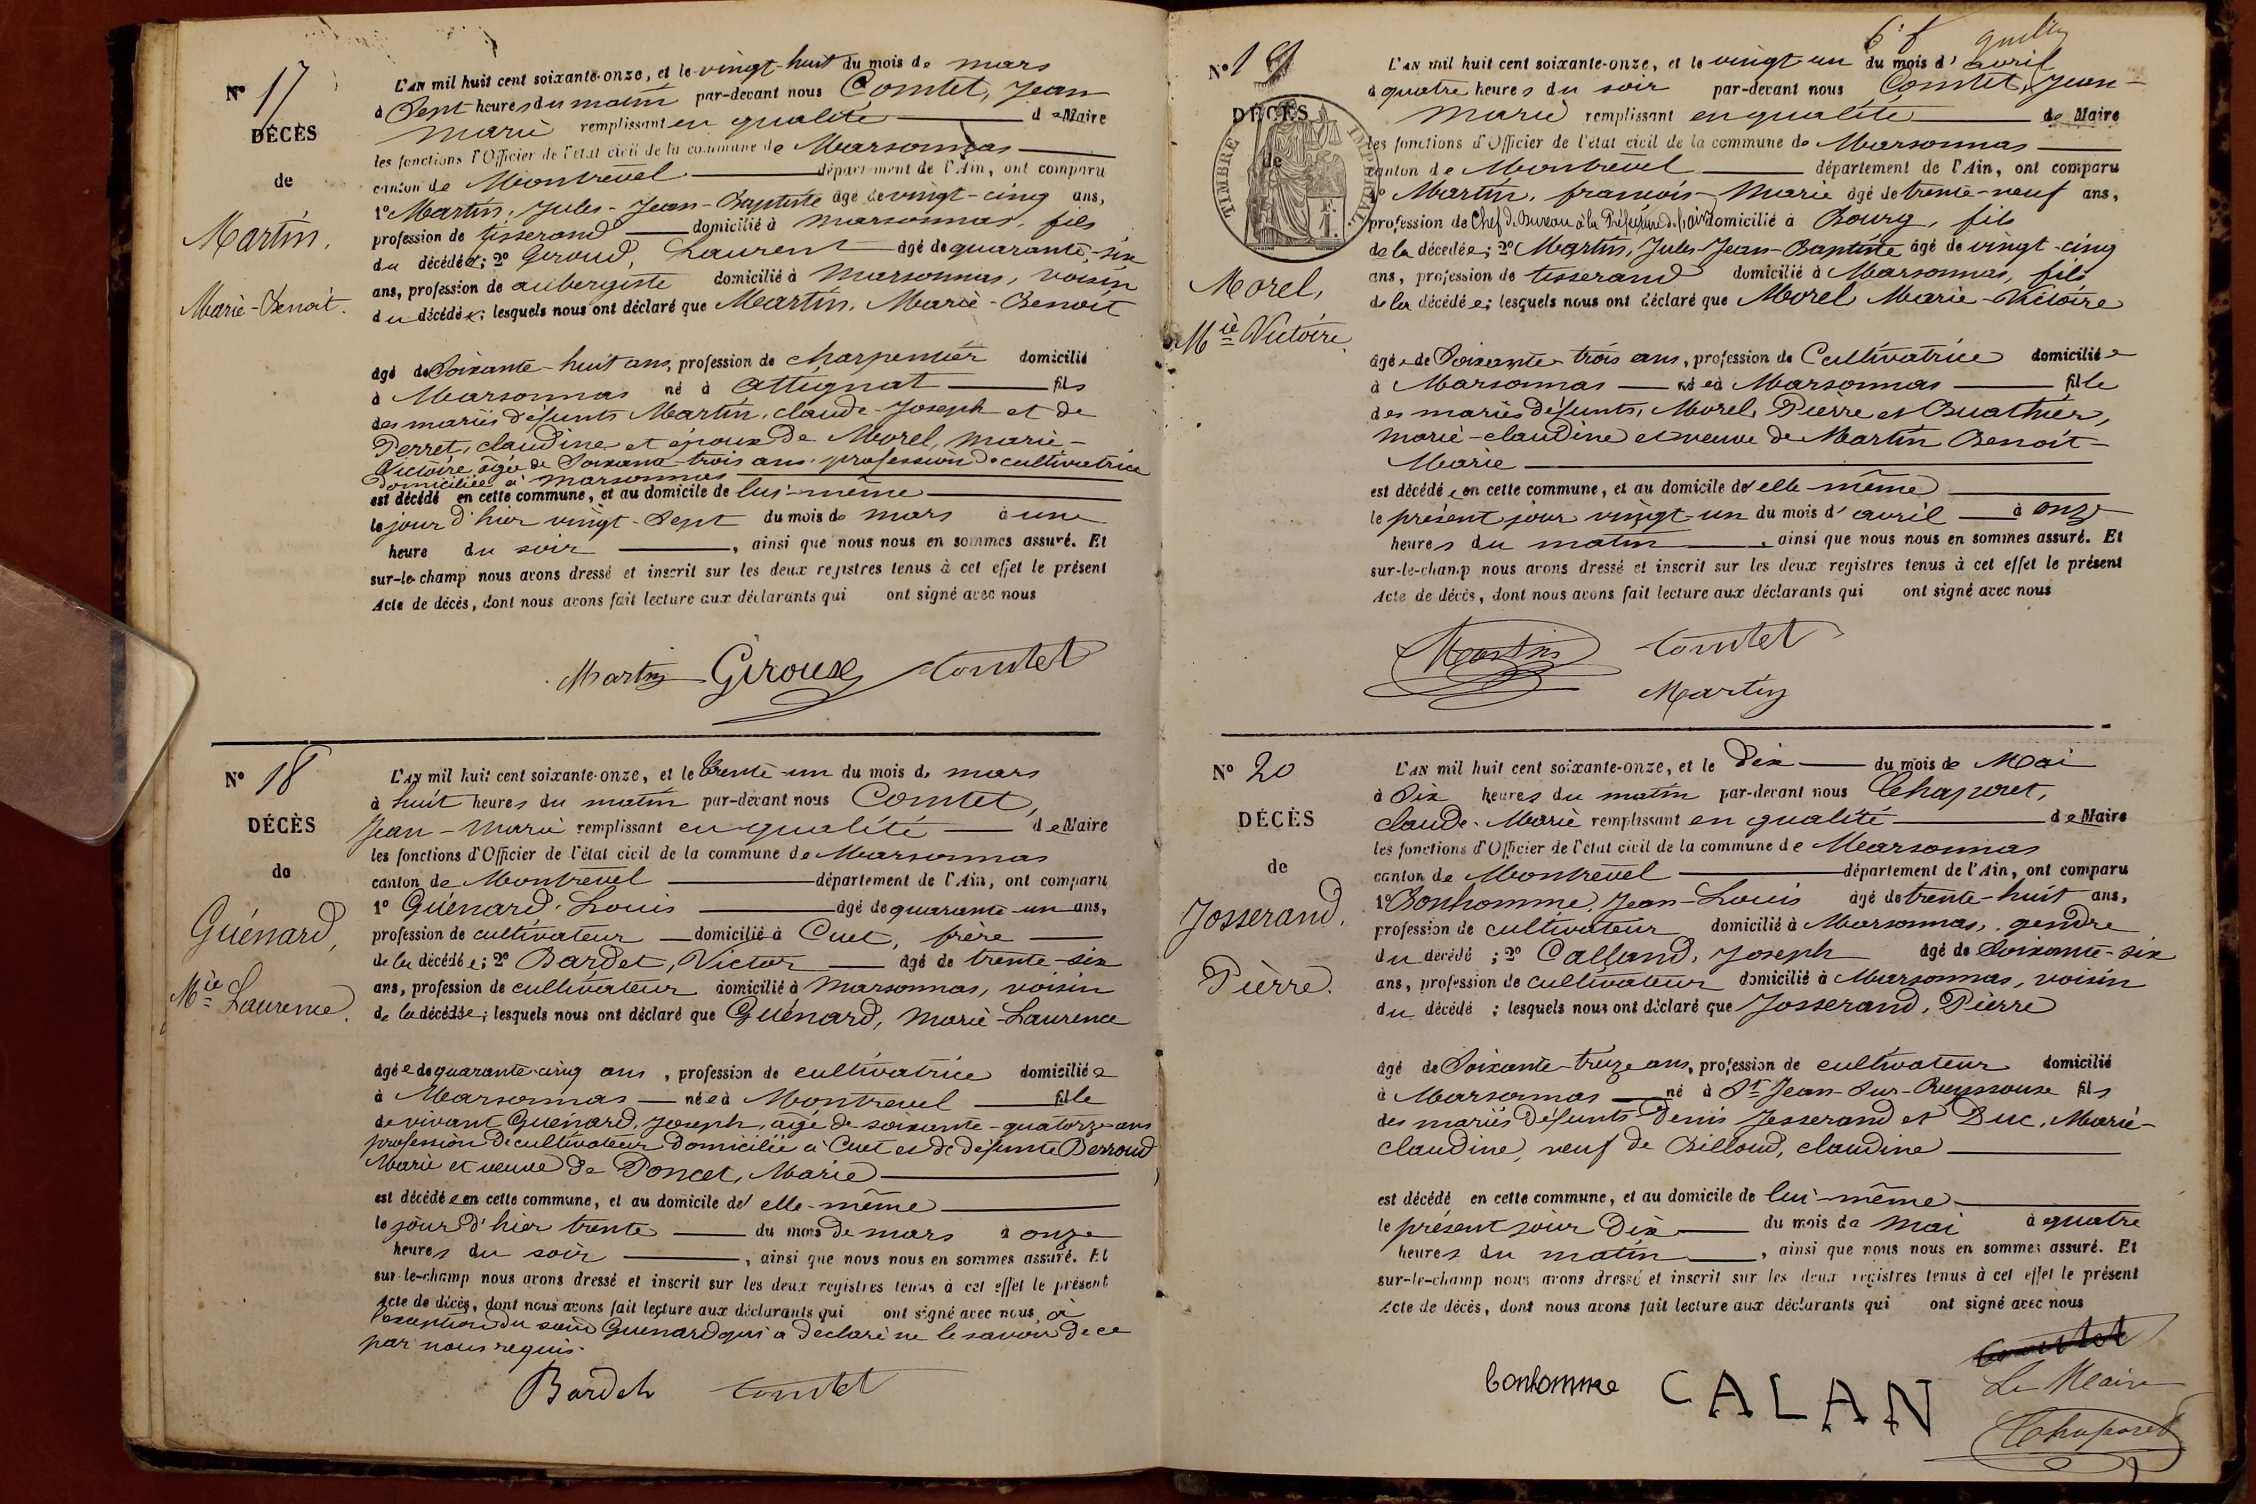 N° 17
DÉCÈS
de
Martin,
Marie-Benoit.
L'AN mil huit cent soixante-onze, et le vingt-huit du mois de mars
à Sept heures du matin par-devant nous Comtet, Jean
Marie remplissant en qualité de Maire
les fonctions d'Officier de l'état civil de la commune de Marsonnas
canton de Montrevel département de l'Ain, ont comparu
1° Martin, Jules-Jean-Baptiste âgé de vingt-cinq ans,
profession de tisserand domicilié à Marsonnas, fils
du décédé; 2° Giroud, Laurent âgé de quarante-six
ans, profession de aubergiste domicilié à Marsonnas, voisin
du décédé; lesquels nous ont déclaré que Martin, Marie-Benoit
âgé de Soixante-huit ans, profession de charpentier domicilié
à Marsonnas né à Attignat fils
des mariés défunts Martin, claude-Joseph et de
Perret, claudine et époux de Morel, Marie-
Victoire âgée de Soixante-trois ans, profession de cultivatrice
domiciliée à Marsonnas
est décédé en cette commune, et au domicile de lui-même
le jour d'hier vingt-Sept du mois de mars à une
heure du soir, ainsi que nous nous en sommes assuré. Et
sur-le-champ nous avons dressé et inscrit sur les deux registres tenus à cet effet le présent
Acte de décès, dont nous avons fait lecture aux déclarants qui ont signé avec nous
Martin Giroux Comtet
N° 18
DÉCÈS
de
Guénard,
Mie Laurence.
L'AN mil huit cent soixante-onze, et le trente-un du mois de mars
à huit heures du matin par-devant nous Comtet,
Jean-Marie remplissant en qualité de Maire
les fonctions d'Officier de l'état civil de la commune de Marsonnas
canton de Montrevel département de l'Ain, ont comparu
1° Guénard, Louis âgé de quarante-un ans,
profession de cultivateur domicilié à Cuet, frère
de la décédée; 2° Bardet, Victor âgé de trente-six
ans, profession de cultivateur domicilié à Marsonnas, voisin
de la décédée; lesquels nous ont déclaré que Guénard, Marie-Laurence
âgée de quarante-cinq ans, profession de cultivatrice domiciliée
à Marsonnas née à Montrevel fille
de vivant Guénard, Joseph, âgé de soixante-quatorze ans
profession de cultivateur domicilié à Cuet et de défunte Perroud
Marie et veuve de Poncet, Marie
est décédée en cette commune, et au domicile de elle-même
le jour d'hier trente du mois de mars à onze
heures du soir, ainsi que nous nous en sommes assuré. Et
sur-le-champ nous avons dressé et inscrit sur les deux registres tenus à cet effet le présent
Acte de décès, dont nous avons fait lecture aux déclarants qui ont signé avec nous, à
l'exception du sieur Guénard qui a déclaré ne le savoir de ce
par nous requis.
Bardet Comtet
N° 19
DÉCÈS
de
TIMBRE IMPERIAL
Morel,
Mie Victoire
L'AN mil huit cent soixante-onze, et le vingt-un du mois d'avril
à quatre heures du soir par-devant nous Comtet, Jean-
Marie remplissant en qualité de Maire
les fonctions d'Officier de l'état civil de la commune de Marsonnas
canton de Montrevel département de l'Ain, ont comparu
1° Martin, françois-Marie âgé de trente-neuf ans,
profession de Chef de Bureau à la Préfecture de l'ain domicilié à Bourg, fils
de la décédée; 2° Martin, Jules-Jean-Baptiste âgé de vingt-cinq
ans, profession de tisserand domicilié à Marsonnas, fils
de la décédée; lesquels nous ont déclaré que Morel Marie-Victoire
âgée de Soixante-trois ans, profession de Cultivatrice domiciliée
à Marsonnas née à Marsonnas fille
des mariés défunts, Morel, Pierre et Buathier,
Marie-claudine et veuve de Martin Benoit-
Marie
est décédée en cette commune, et au domicile de elle-même
le présent jour vingt-un du mois d'avril à onze
heures du matin, ainsi que nous nous en sommes assuré. Et
sur-le-champ nous avons dressé et inscrit sur les deux registres tenus à cet effet le présent
Acte de décès, dont nous avons fait lecture aux déclarants qui ont signé avec nous
Martin Comtet
Martin
N° 20
DÉCÈS
de
Josserand,
Pierre.
L'AN mil huit cent soixante-onze, et le Dix du mois de Mai
à Dix heures du matin par-devant nous Chaporet,
claude-Marie remplissant en qualité de Maire
les fonctions d'Officier de l'état civil de la commune de Marsonnas
canton de Montrevel département de l'Ain, ont comparu
1° Bonhomme, Jean-Louis âgé de trente-huit ans,
profession de cultivateur domicilié à Marsonnas, gendre
du décédé; 2° Calland, Joseph âgé de Soixante-six
ans, profession de cultivateur domicilié à Marsonnas, voisin
du décédé; lesquels nous ont déclaré que Josserand, Pierre
âgé de Soixante-treize ans, profession de cultivateur domicilié
à Marsonnas né à St Jean-Sur-Reyssouse fils
des mariés défunts Denis Josserand et Duc, Marie-
claudine, veuf de Billoud, claudine
est décédé en cette commune, et au domicile de lui-même
le présent jour Dix du mois de Mai à quatre
heures du matin, ainsi que nous nous en sommes assuré. Et
sur-le-champ nous avons dressé et inscrit sur les deux registres tenus à cet effet le présent
Acte de décès, dont nous avons fait lecture aux déclarants qui ont signé avec nous
Comtet
bonhomme CALAN Le Maire
Chaporet